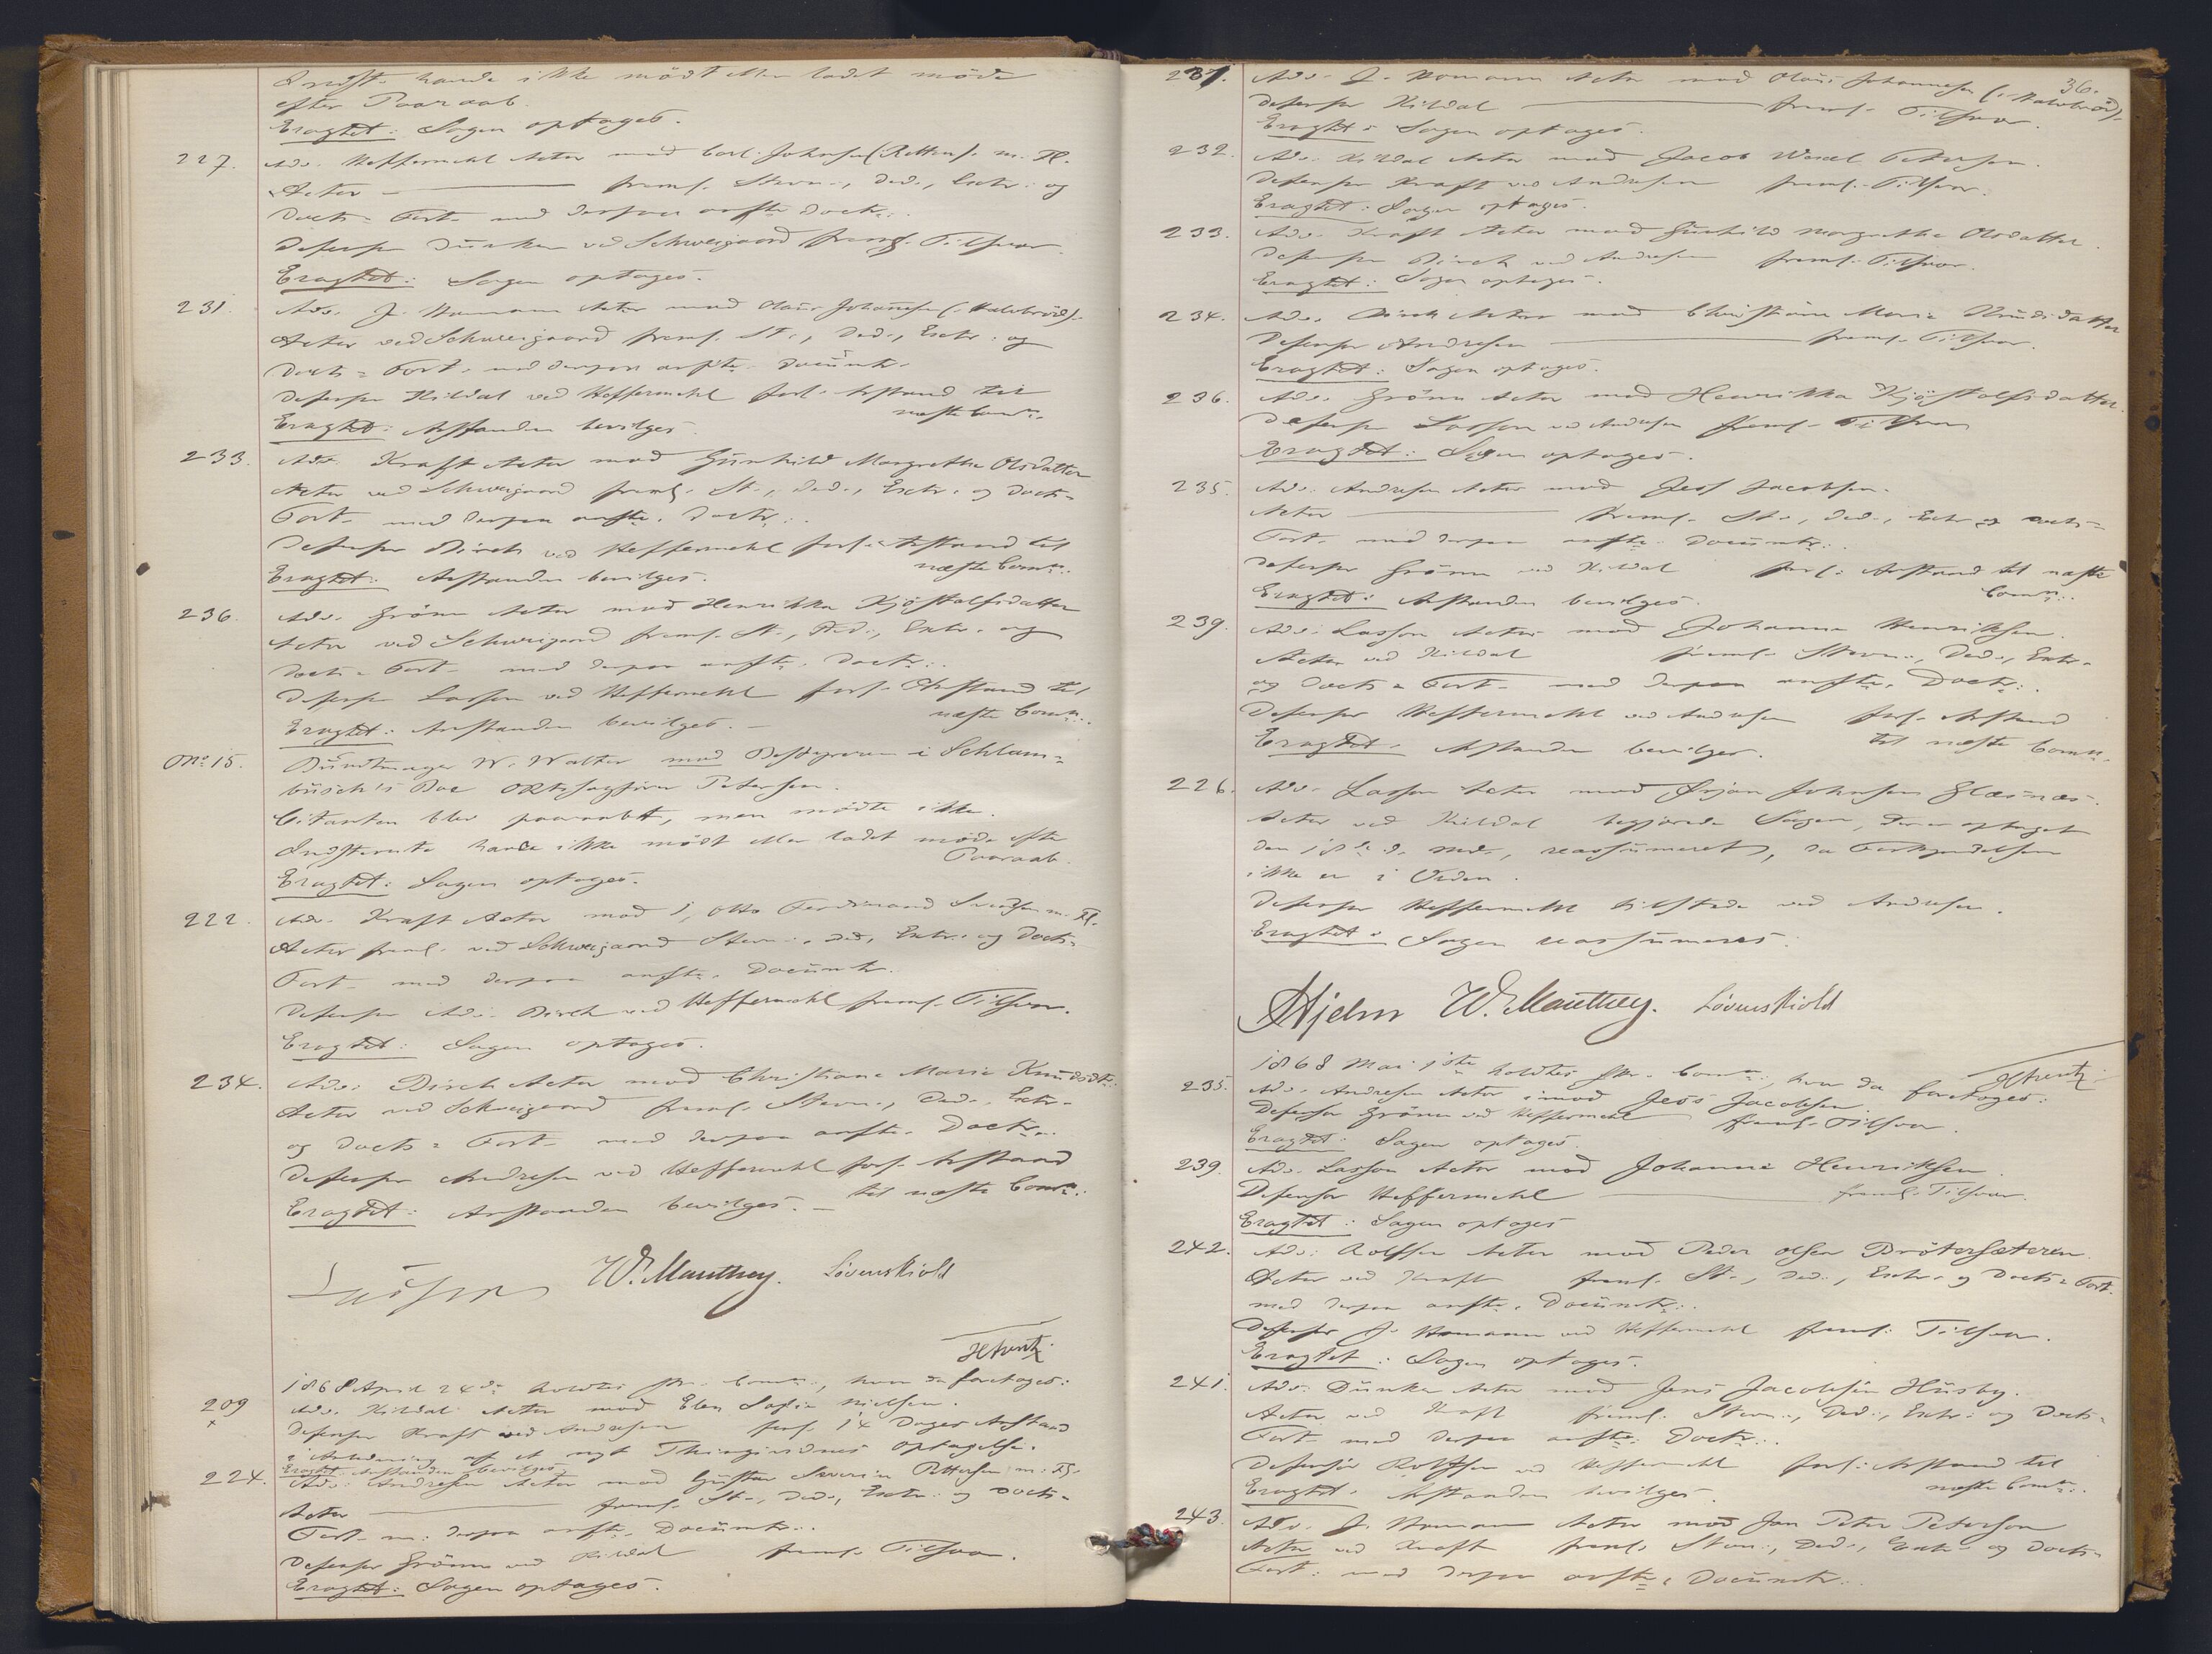 Indst. havde ikke mödt eller ladet möde
efter Paaraab.
Eragtet: Sagen optages.
227. Adv. Heffermehl Actor mod Carl Johnsen (Rotten). m. Fl.
Actor — freml. Stevn., Ded., Extr. og
Docts = Fort. med derpaa anfte Doctr:.
Defensor Dunker ved Schweigaard freml. Tilsvar.
Eragtet: Sagen optages.
231. Adv. J. Homann Actor mod Olaus Johannesen (Halvbröd).
Actor ved Schweigaard freml. St., Ded., Extr. og
Docts = Fort. med derpaa anfte. Documtr.
Defensor Kildal ved Heffermehl forl. Anstand til
næste Comn:.
Eragtet: Anstanden bevilges.
233. Adv. Kraft Actor mod Gunhild Margrethe Olsdatter
Actor ved Schweigaard freml. St., Ded., Extr. og Docts=
Fort. med derpaa anfte. Doctr:.
Defensor Birch ved Heffermehl forl. Anstand til
næste Comn:.
Eragtet: Anstanden bevilges.
236. Adv. Grönn Actor mod Henrikka Kjöstolfsdatter
Actor ved Schweigaard freml. St., Ded., Extr. og
Docts = Fort. med derpaa anfte. Doctr:.
Defensor Lasson ved Heffermehl forl. Anstand til
næste Comn:.
Eragtet: Anstanden bevilges. —
No: 15. Buntmager W. Walter mod Bestyreren i Schlam=
busch's Bo Sagförer Petersen.
Citanten blev paaraabt, men mödte ikke.
Indstevnte havde ikke mödt eller ladet möde efter
Paaraab.
Eragtet: Sagen optages.
222. Adv. Kraft Actor mod 1, Otto Ferdinand Svendsen m. Fl.
Actor freml. ved Schweigaard Stevn., Ded., Extr. og Docts=
Fort. med derpaa anfte. Documtr.
Defensor Adv. Birch ved Heffermehl freml. Tilsvar.
Eragtet: Sagen optages.
234. Adv. Birch Actor mod Christiane Marie Knudsdtr:
Actor ved Schweigaard freml. Stevn., Ded., Extr.
og Docts = Fort. med derpaa anfte. Doctr:.
Defensor Andresen ved Heffermehl forl. Anstand
til næste Comn:.
Eragtet: Anstanden bevilges. —
W. Manthey. Lövenskiold
1868 April 24de holdtes Comn:, hvor da foretoges:
209 Adv. Kildal Actor mod Elen Sofie Nielsen.
x Defensor Kraft ved Andresen forl. 14 Dages Anstand
i Anledning af et nyt Thingsvidnes Optagelse.
Eragtet: Anstanden bevilges.
224. Adv. Andresen Actor mod Gustav Severin Pettersen m. Fl.
Actor — freml. St., Ded., Extr. og Docts=
Fort. m. derpaa anfte. Documtr:.
Defensor Grönn ved Kildal freml. Tilsvar.
Eragtet: Sagen optages.
36.
231. Adv. J. Homann Actor mod Olaus Johannesen (Halvbröd).
Defensor Kildal — freml. Tilsvar.
Eragtet: Sagen optages.
232. Adv. Kildal Actor mod Jacob Wessel Petersen.
Defensor Kraft ved Andresen freml. Tilsvar.
Eragtet: Sagen optages.
233. Adv. Kraft Actor mod Gunhild Margrethe Olsdatter.
Defensor Birch ved Andresen freml. Tilsvar.
Eragtet: Sagen optages.
234. Adv. Birch Actor mod Christiane Marie Knudsdatter
Defensor Andresen — freml. Tilsvar.
Eragtet: Sagen optages.
236. Adv. Grönn Actor mod Henrikka Kjöstolfsdatter.
Defensor Lasson ved Andresen freml. Tilsvar
Eragtet: Sagen optages.
235. Adv. Andresen Actor mod Jess Jacobsen.
Actor — freml. St., Ded., Extr. og Docts=
Fort. med derpaa anfte. Documtr:.
Defensor Grönn ved Kildal forl. Anstand til næste
Comn:.
Eragtet: Anstanden bevilges.
239. Adv. Lasson Actor mod Johanne Henriksen.
Actor ved Kildal freml. Stevn., Ded., Extr.
og Docts = Fort. med derpaa anfte. Doctr:.
Defensor Heffermehl ved Andresen forl. Anstand
til næste Comn.
Eragtet: Anstanden bevilges.
226. Adv. Lasson Actor mod Örjan Johnsen Glasnæs.
Actor ved Kildal begjærede Sagen, der er optaget
den 18de d. Md., reassumeret, da Forkyndelsen
ikke er i Orden.
Defensor Heffermehl tilstede ved Andresen.
Eragtet: Sagen reassumeres.
Hjelm W. Manthey. Lövenskiold
1868 Mai 1ste holdtes Comn:, hvor da foretoges:
235. Adv. Andresen Actor imod Jess Jacobsen.
Defensor Grönn ved Heffermehl freml. Tilsvar.
Eragtet: Sagen optages.
239. Adv. Lasson Actor mod Johanne Henriksen.
Defensor Heffermehl — freml. Tilsvar.
Eragtet: Sagen optages
242. Adv: Rolfsen Actor mod Peder Olsen Brötersæteren.
Actor ved Kraft freml. St., Ded., Extr. og Docts = Fort.
med derpaa anfte. Documtr:.
Defensor J. Homann ved Heffermehl freml. Tilsvar.
Eragtet: Sagen optages.
241. Adv: Dunker Actor mod Jens Jacobsen Husby.
Actor ved Kraft freml. Stevn., Ded., Extr. og Docts=
Fort. med derpaa anfte. Doctr:.
Defensor Rolfsen ved Heffermehl forl. Anstand til
næste Comn:.
Eragtet: Anstanden bevilges.
243. Adv. J. Homann Actor mod Jan Peter Peterson
Actor ved Kraft freml. Stevn., Ded., Extr. og Docts=
Fort. med derpaa anfte. Documtr:.